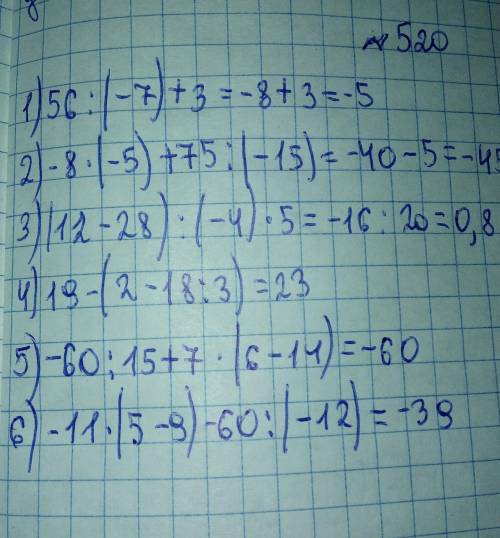 №520
1) 56 : (-7) + 3 = -8 + 3 = -5
2) -8 · (-5) + 75 : (-15) = -40 - 5 = -45
3) (12 - 28) : (-4) · 5 = -16 : 20 = 0,8
4) 19 - (2 - 18 : 3) = 23
5) -60 : 15 + 7 · (6 - 14) = -60
6) -11 · (5 - 9) - 60 : (-12) = -39